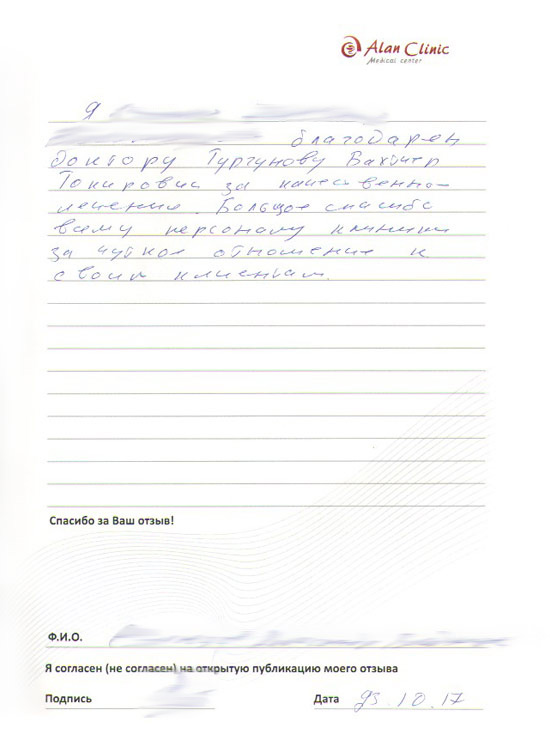 Alan Clinic
Medical center
Я
благодарен
доктору Тургунову Бахтиер
Токировиз за качественно-
лечение. Большое спасибо
всему персоналу клиники
за чуткое отношение к
своим клиентам.
Спасибо за Ваш отзыв!
Ф.И.О.
Я согласен (не согласен) на открытую публикацию моего отзыва
Подпись
Дата 23.10.17